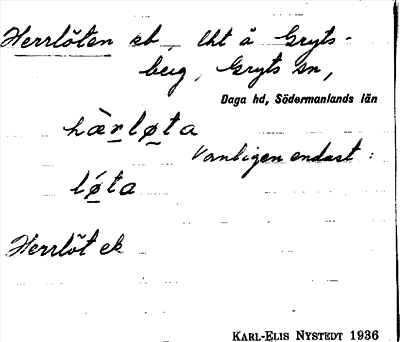 Herrlöten eb, lht å Gryts-
berg, Gryts sn,
Daga hd, Södermanlands län
hæ̀rlø̱ta
Vanligen endast:
lǿ̱ta
Herrlöt ek
KARL-ELIS NYSTEDT 1936